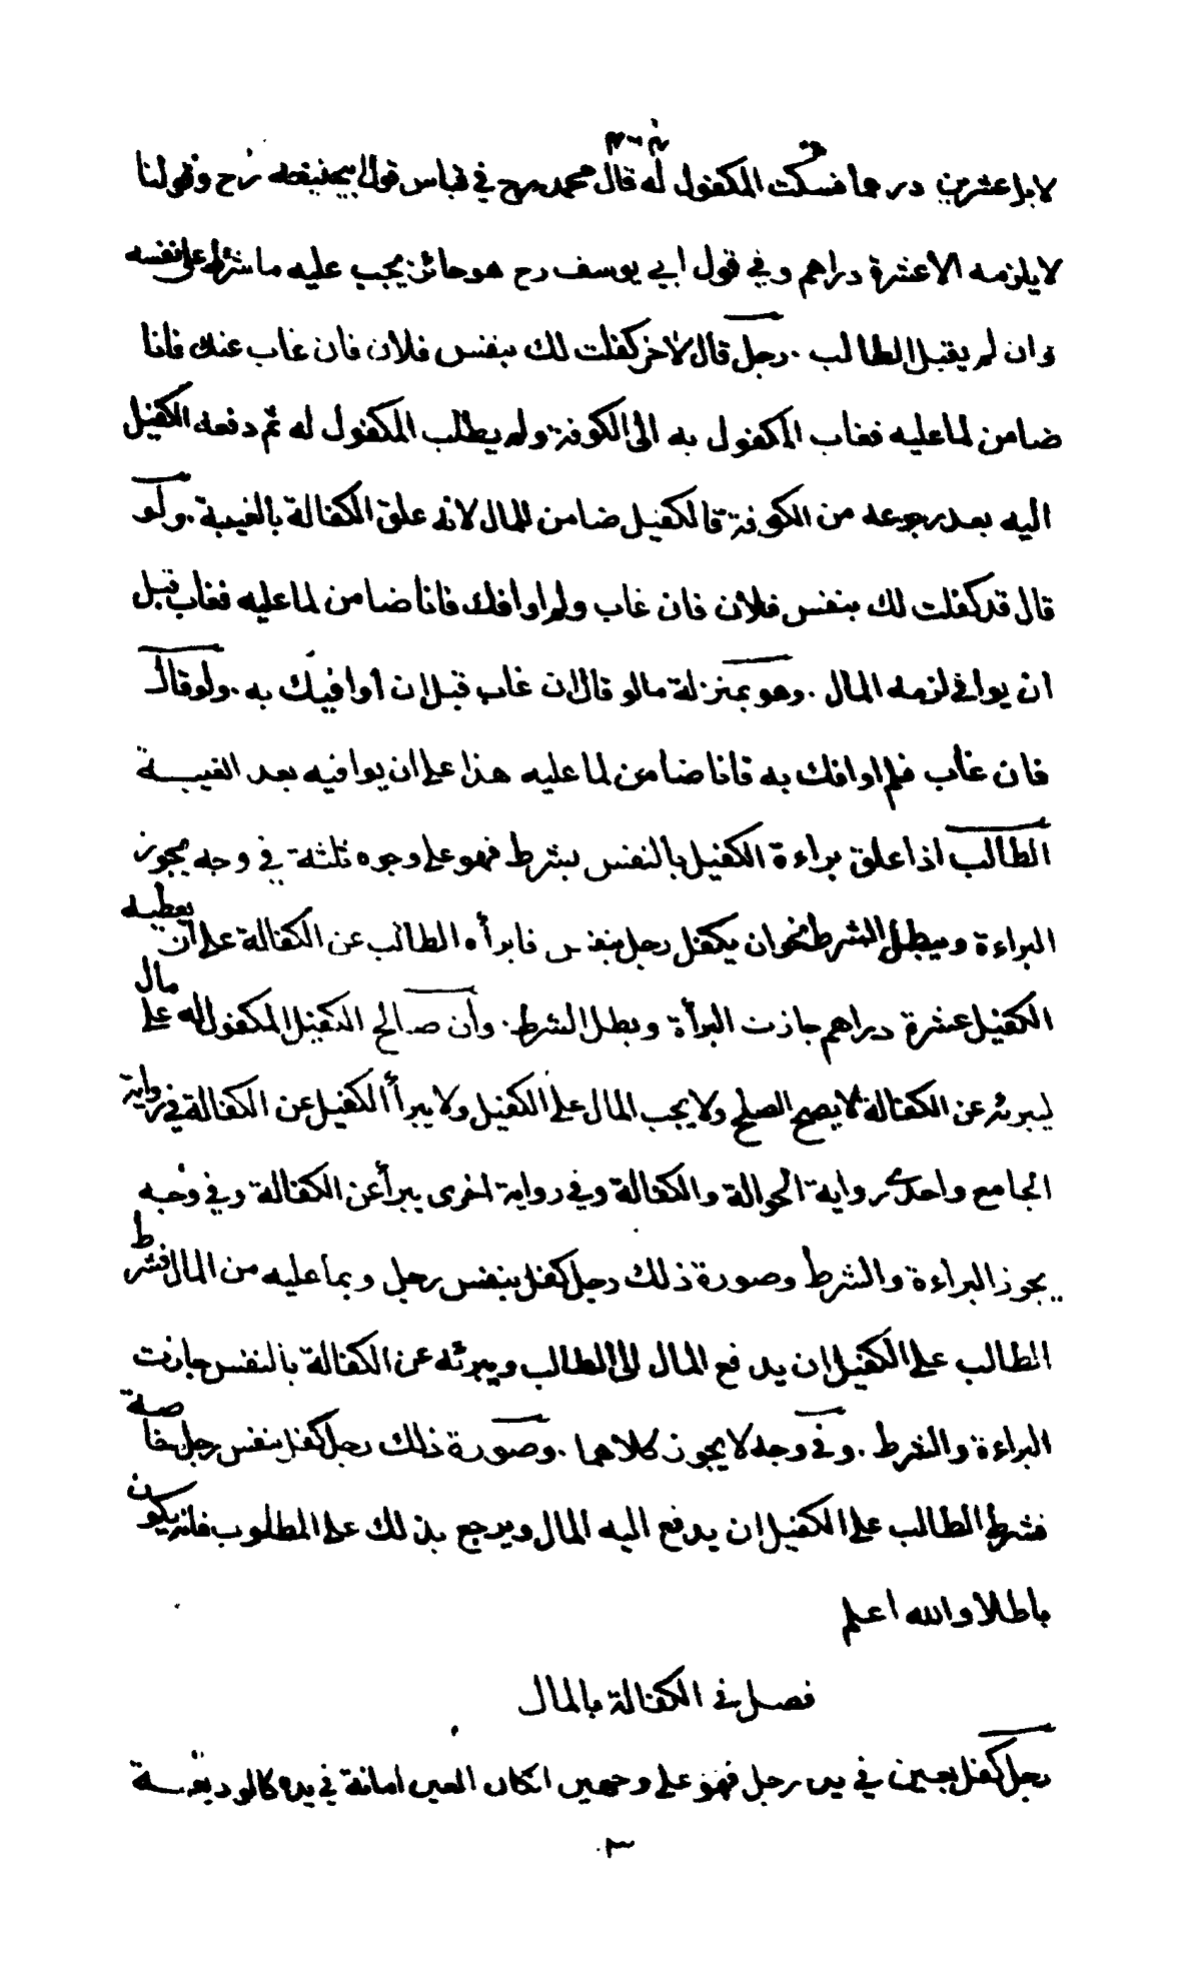 لا بل عشرين درهما فسكت المكفول له قال محمد رح في قياس قول ابيحنيفه رح وقولنا
لا يلزمه الا عشرة دراهم وفي قول ابي يوسف رح هو جائز يجب عليه ما شرط على نفسه
وان لم يقبل الطالب . رجل قال لاخر كفلت لك بنفس فلان فان غاب عنك فانا
ضامن لما عليه فغاب المكفول به الى الكوفة ولم يطلب المكفول له ثم دفعه الكفيل
اليه بعد رجوعه من الكوفة فالكفيل ضامن للمال لانه علق الكفالة بالغيبة . ولو
قال قد كفلت لك بنفس فلان فان غاب ولم اوافك فانا ضامن لما عليه فغاب قبل
ان يوافي لزمه المال . وهو بمنزلة ما لو قال ان غاب قبل ان أوافيك به . ولو قال
فان غاب فلم اوافك به فانا ضامن لما عليه هذا على ان يوافيه بعد الغيبة
الطالب اذا علق براءة الكفيل بالنفس بشرط فهو على وجوه ثلثة في وجه يجوز
البراءة ويبطل الشرط نحو ان يكفل رجل بنفس فابرأه الطالب عن الكفالة على ان يعطيه
الكفيل عشرة دراهم جازت البرأة وبطل الشرط . وان صالح الكفيل المكفول له على مال
ليبرئه عن الكفالة لا يصح الصلح ولا يجب المال على الكفيل ولا يبرأ الكفيل عن الكفالة في رواية
الجامع واحدى رواية الحوالة والكفالة وفي رواية اخرى يبرأ عن الكفالة وفي وجه
يجوز البراءة والشرط وصورة ذلك رجل كفل بنفس رجل وبما عليه من المال فشرط
الطالب على الكفيل ان يدفع المال الى الطالب ويبرئه عن الكفالة بالنفس جازت
البراءة والشرط . وفي وجه لا يجوز كلاهما . وصورة ذلك رجل كفل بنفس رجل خاصة
فشرط الطالب على الكفيل ان يدفع اليه المال ويرجع بذلك على المطلوب فانه يكون
باطلا والله اعلم
فصل في الكفالة بالمال
رجل كفل بعين في يد رجل فهو على وجهين ان كان العين امانة في يده كالوديعة